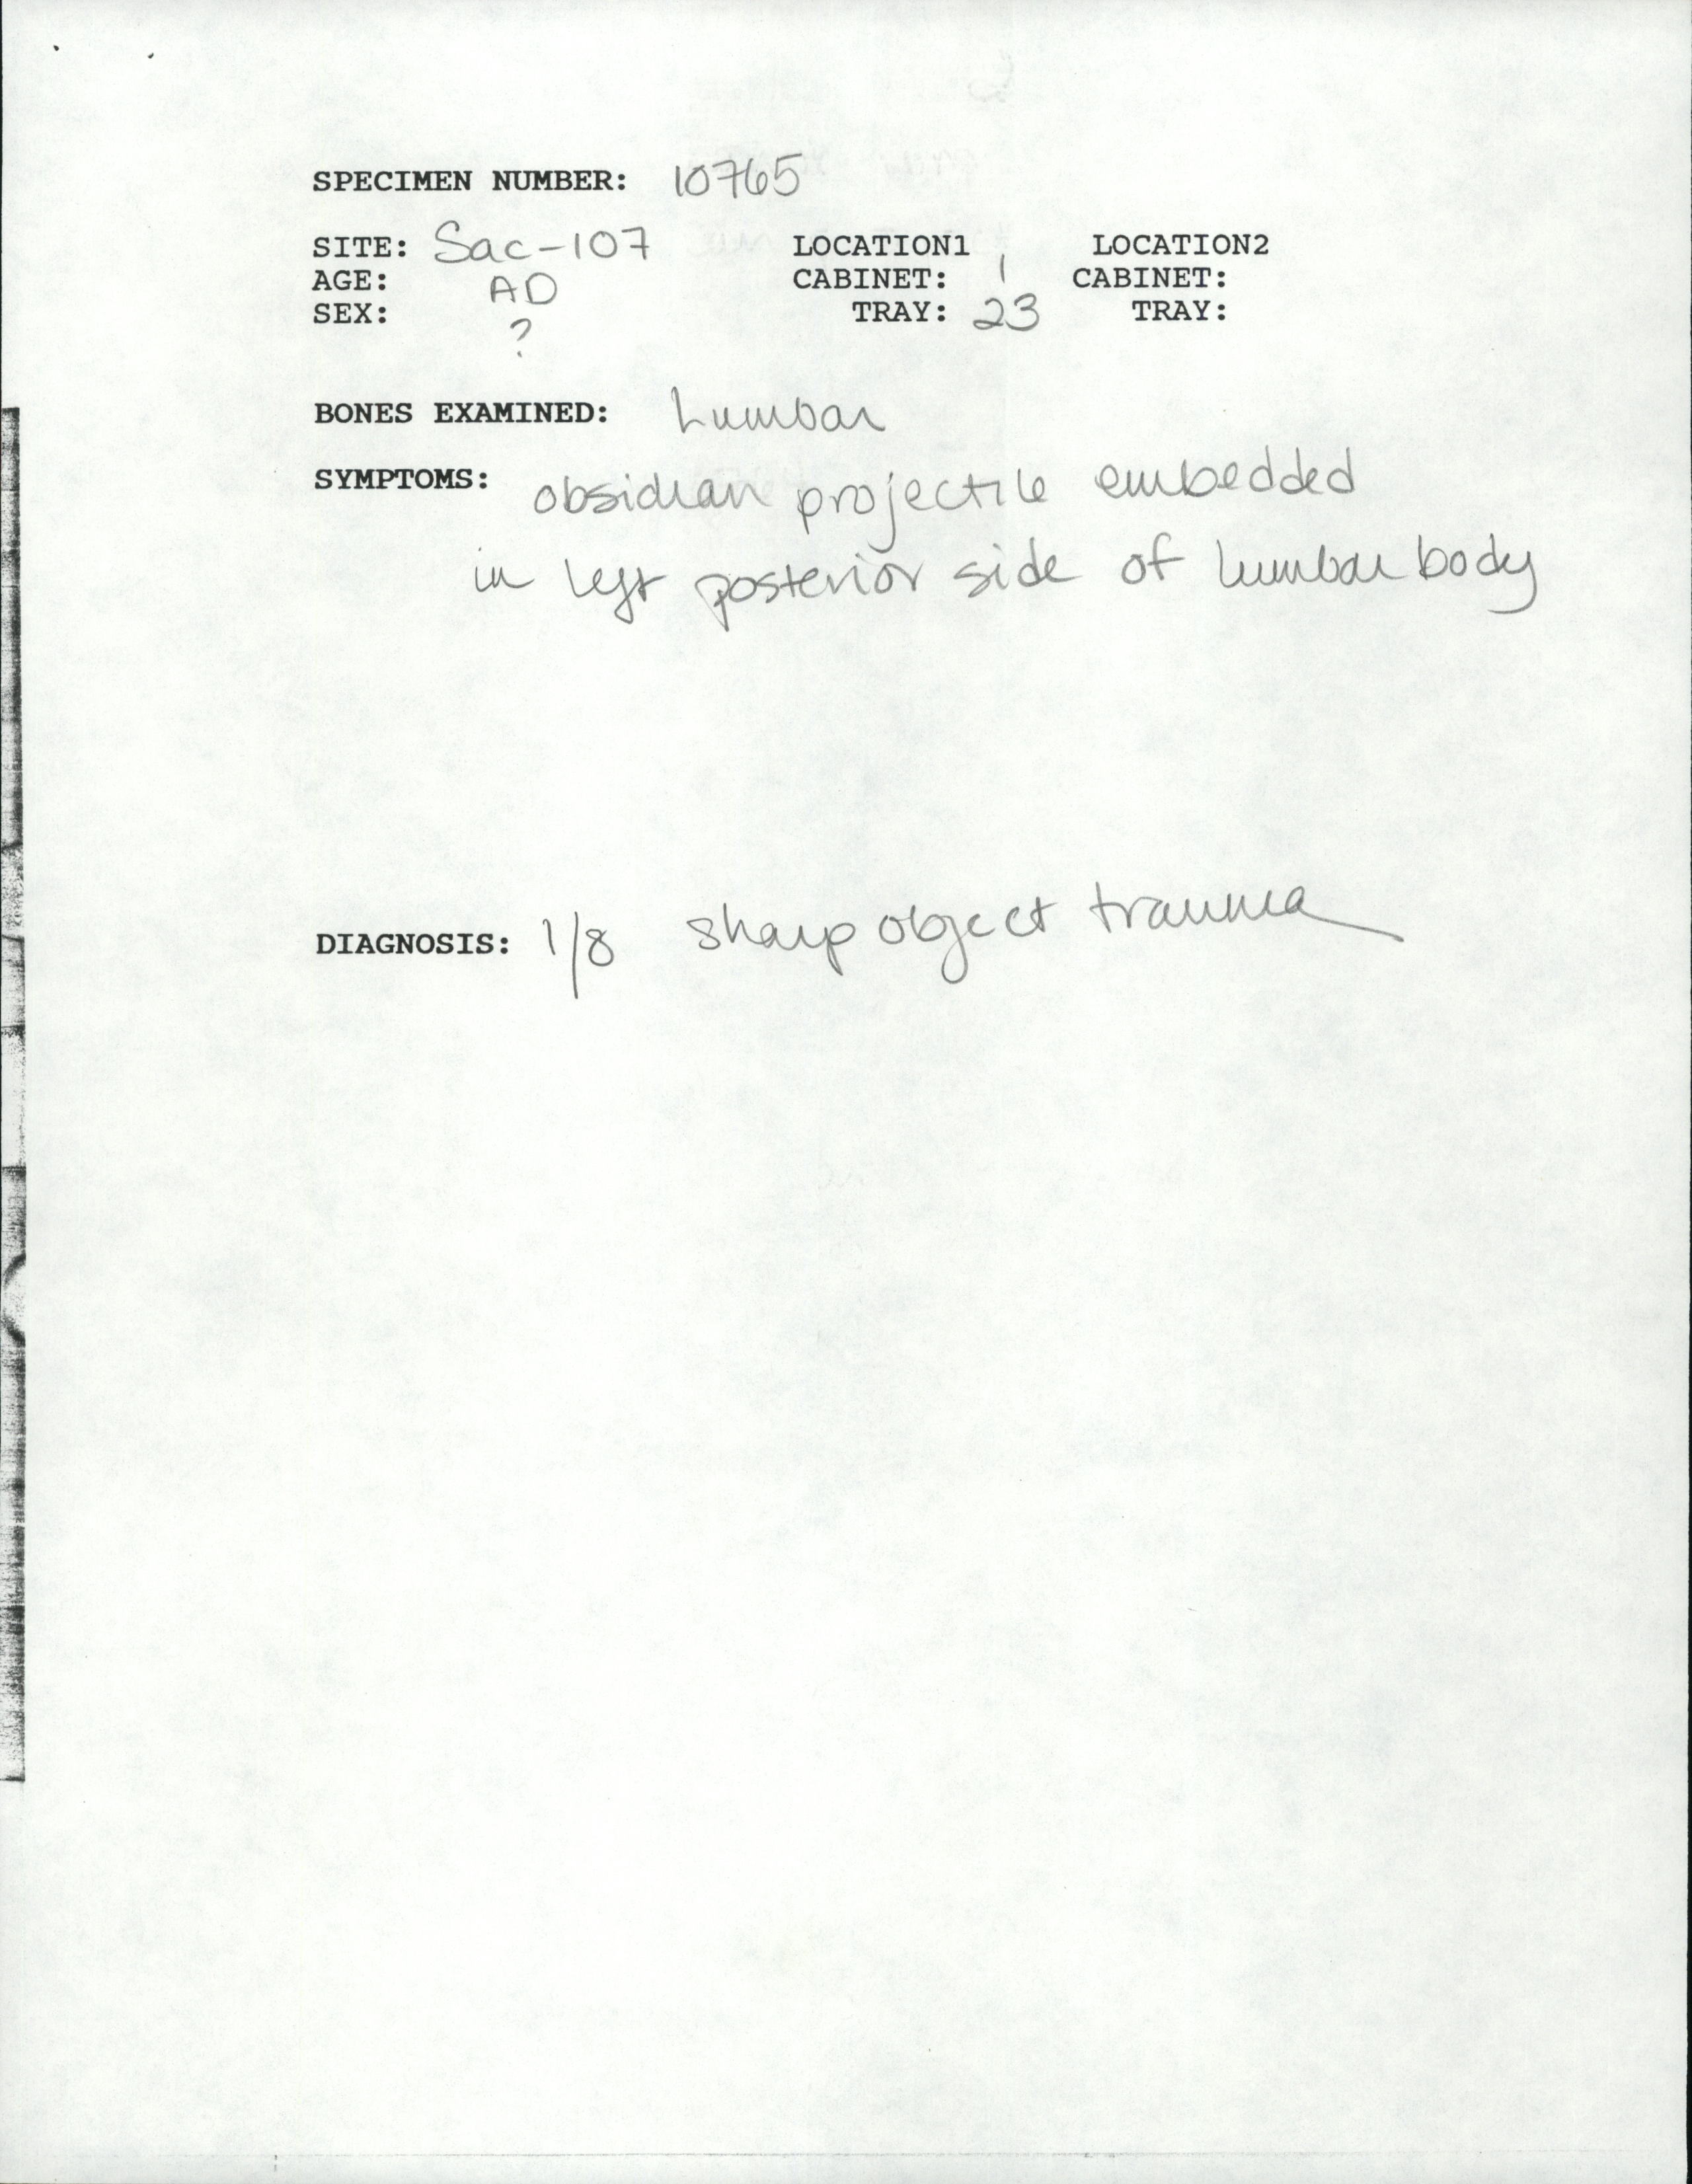 SPECIMEN NUMBER: 10765
SITE: Sac-107 LOCATION1 LOCATION2
AGE: AD CABINET: 1 CABINET:
SEX: ? TRAY: 23 TRAY:
BONES EXAMINED: Lumbar
SYMPTOMS: obsidian projectile embedded
in left posterior side of lumbar body
DIAGNOSIS: 1/8 sharp object trauma